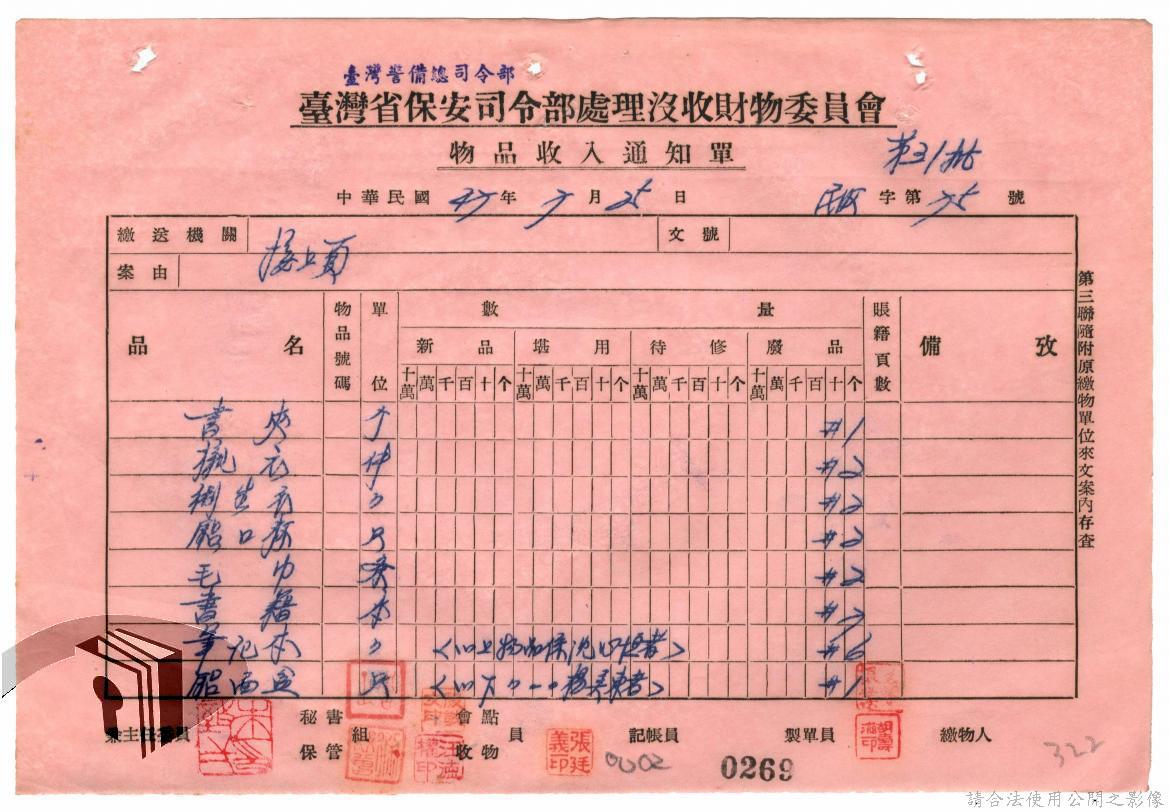 臺灣警備總司令部
臺灣省保安司令部處理沒收財物委員會
物品收入通知單
第31批
中華民國 47年 7月25日 字第 75 號
繳送機關 文號
案由
品名 物品號碼 單位 數量 賬籍頁數 備攷
新品 堪用 待修 廢品
十萬 萬 千 百 十 个 十萬 萬 千 百 十 个 十萬 萬 千 百 十 个 十萬 萬 千 百 十 个
書夾 个 #1
衣 件 #2
衛生衣 〃 #2
口杯 只 #2
毛巾 条 #2
書籍 本 #7
筆記本 〃 #6
只 #1
第三聯隨附原繳物單位來文案內存查
兼主任委員 秘書 保管 組 會點 收物 員 記帳員 製單員 繳物人
張廷義印
0002
0269
322
請合法使用公開之影像